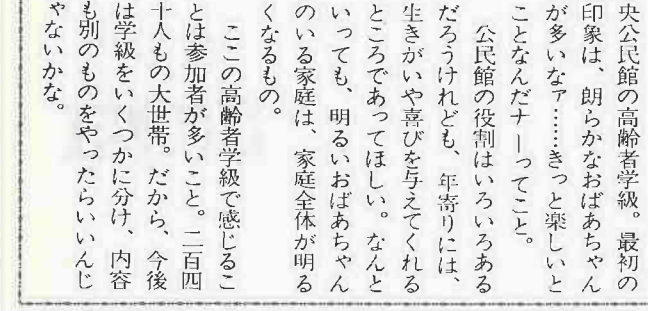 央公民館の高齢者学級。最初の
印象は、朗らかなおばあちゃん
が多いなァ……きっと楽しいと
ことなんだナーってこと。
公民館の役割はいろいろある
だろうけれども、年寄りには、
生きがいや喜びを与えてくれる
ところであってほしい。なんと
いっても、明るいおばあちゃん
のいる家庭は、家庭全体が明る
くなるもの。
ここの高齢者学級で感じるこ
とは参加者が多いこと。二百四
十人もの大世帯。だから、今後
は学級をいくつかに分け、内容
も別のものをやったらいいんじ
ゃないかな。